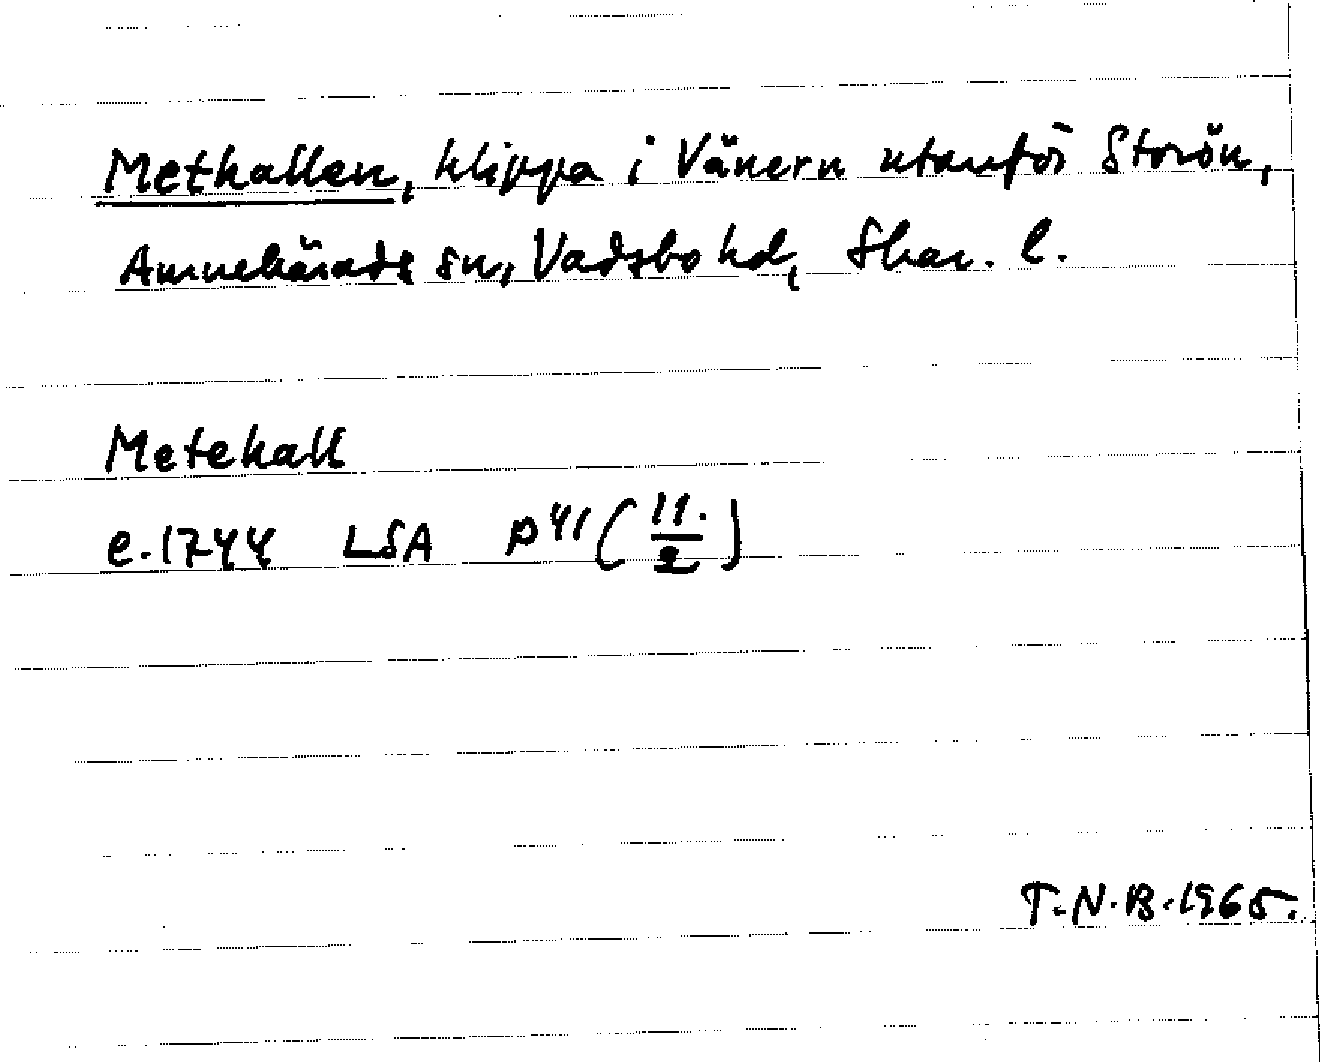 Methallen, klippa i Vänern utanför Storön,
Amnehärads sn, Vadsbo hd, Skar. l.
Metehall
e. 1744 LSA P 41 (11./2)
T.N.B. 1965.